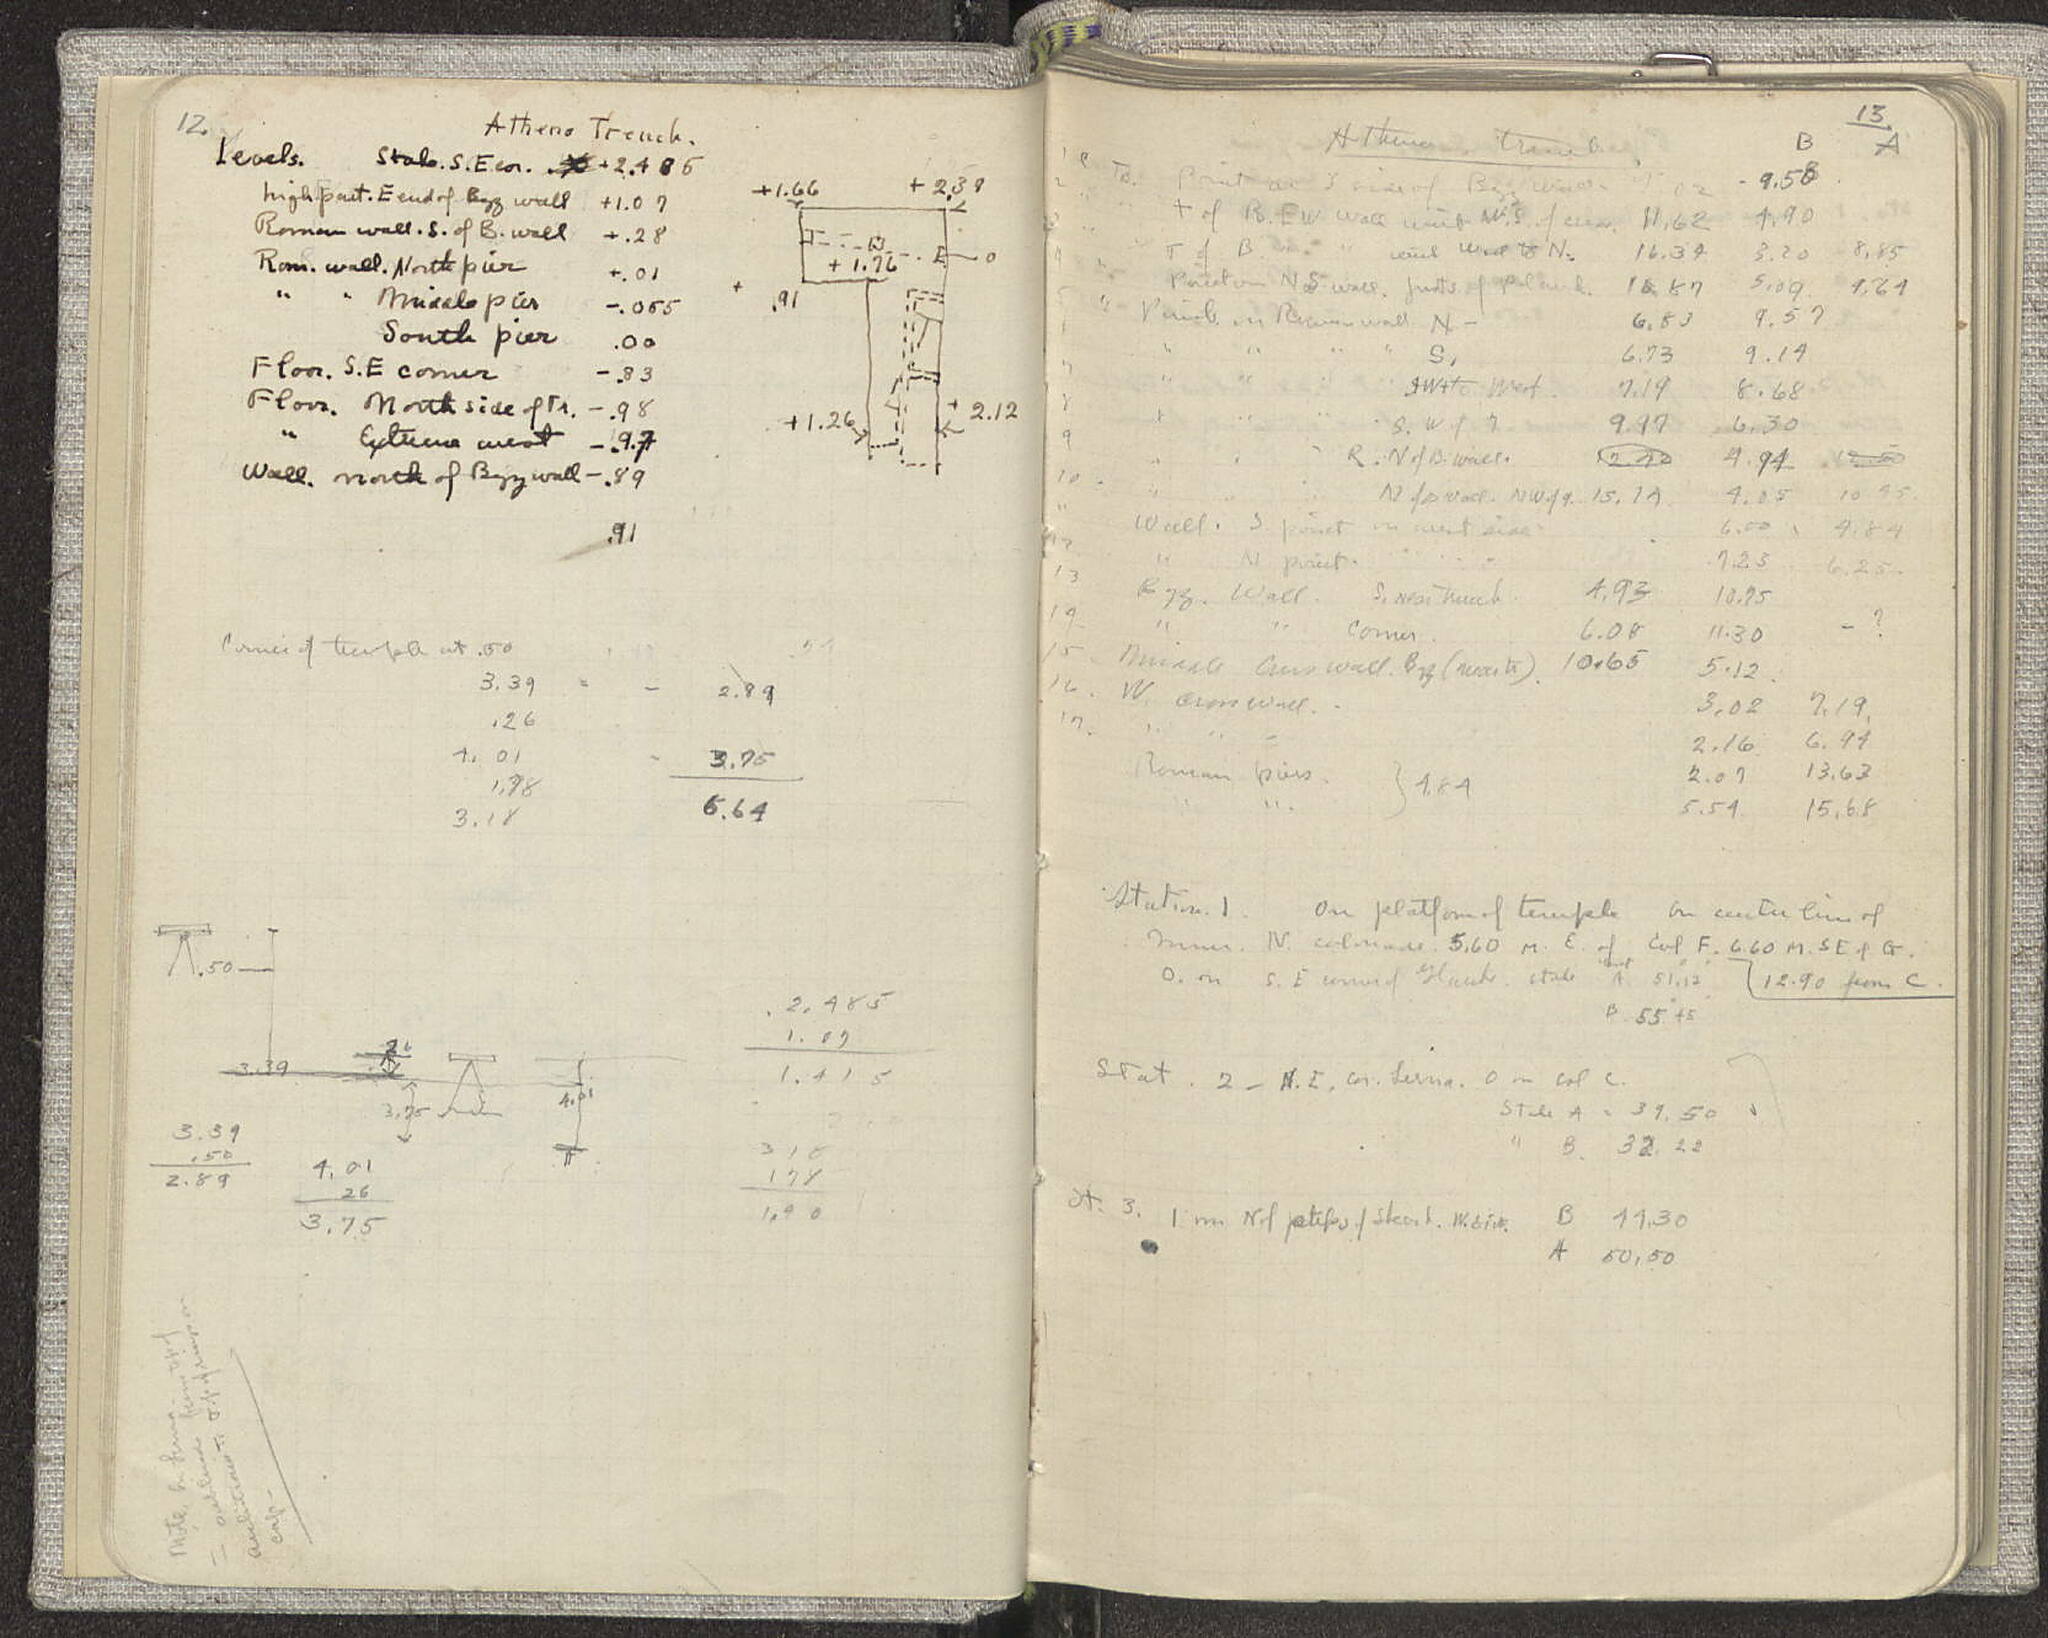 12.
Athena Trench.
Levels. Stake. S.E cor. +2.485
high part. E end of Byz wall +1.07
Roman wall. S. of B. wall +.28
Rom. wall. North pier +.01
" " Middle pier -.065
South pier .00
Floor. S.E corner -.83
Floor. North side of Tr. -.98
" Extreme west -.97
Wall. north of Byz wall -.89
.91
+1.66 + 2.39
+ 1.76 0
+ .91
+1.26 + 2.12
Corner of temple at .50
3.39 = - 2.89
.26
4.01 - 3.75
1.78 6.64
3.18
.50
3.39 26
3.75 4.01
3.39
.50
2.89
4.01
26
3.75
2.485
1.07
1.415
318
178
1.40
13.
Athena trench
B A
To. Point on S side of Byz wall 9.58
+ of B. E W wall 11.62 4.90
T of B. " and wall to N. 16.34 3.20 8.85
Point on N S wall. 16.87 5.09 4.64
5 " Point on Roman wall N - 6.83 9.57
" " " " S. 6.73 9.14
7 " " " " West. 7.19 8.68
8 " " S. W of 7. 9.97 6.30
9 " " " R. N of B. wall. 4.94
10 " " " N of B wall. NW of 9. 15.14 4.05 10.95
" Wall. S point on west side 6.00 4.84
12 " N point. 7.25 6.25
13 Byz. Wall. S. near trench. 4.93 10.75
14 " " corner. 6.08 11.30 - ?
15 Middle Cross wall. Byz (north). 10.65 5.12
16. W. cross wall. 3.02 7.19
17. " " 2.16 6.94
Roman piers. } 4.84 2.07 13.63
" " 5.54 15.68
Station. 1. On platform of temple on center line of
inner. N. colonnade. 5.60 M. E. of Col F. 6.60 M. SE of G.
O. on S. E corner of stake A 51.12 12.90 from C.
B. 55 45
Stat. 2 - N. E. cor. O on col C.
Stake A = 39.50
" B. 32.22
St. 3. 1 m N of B 44.30
A 50.50
Note.